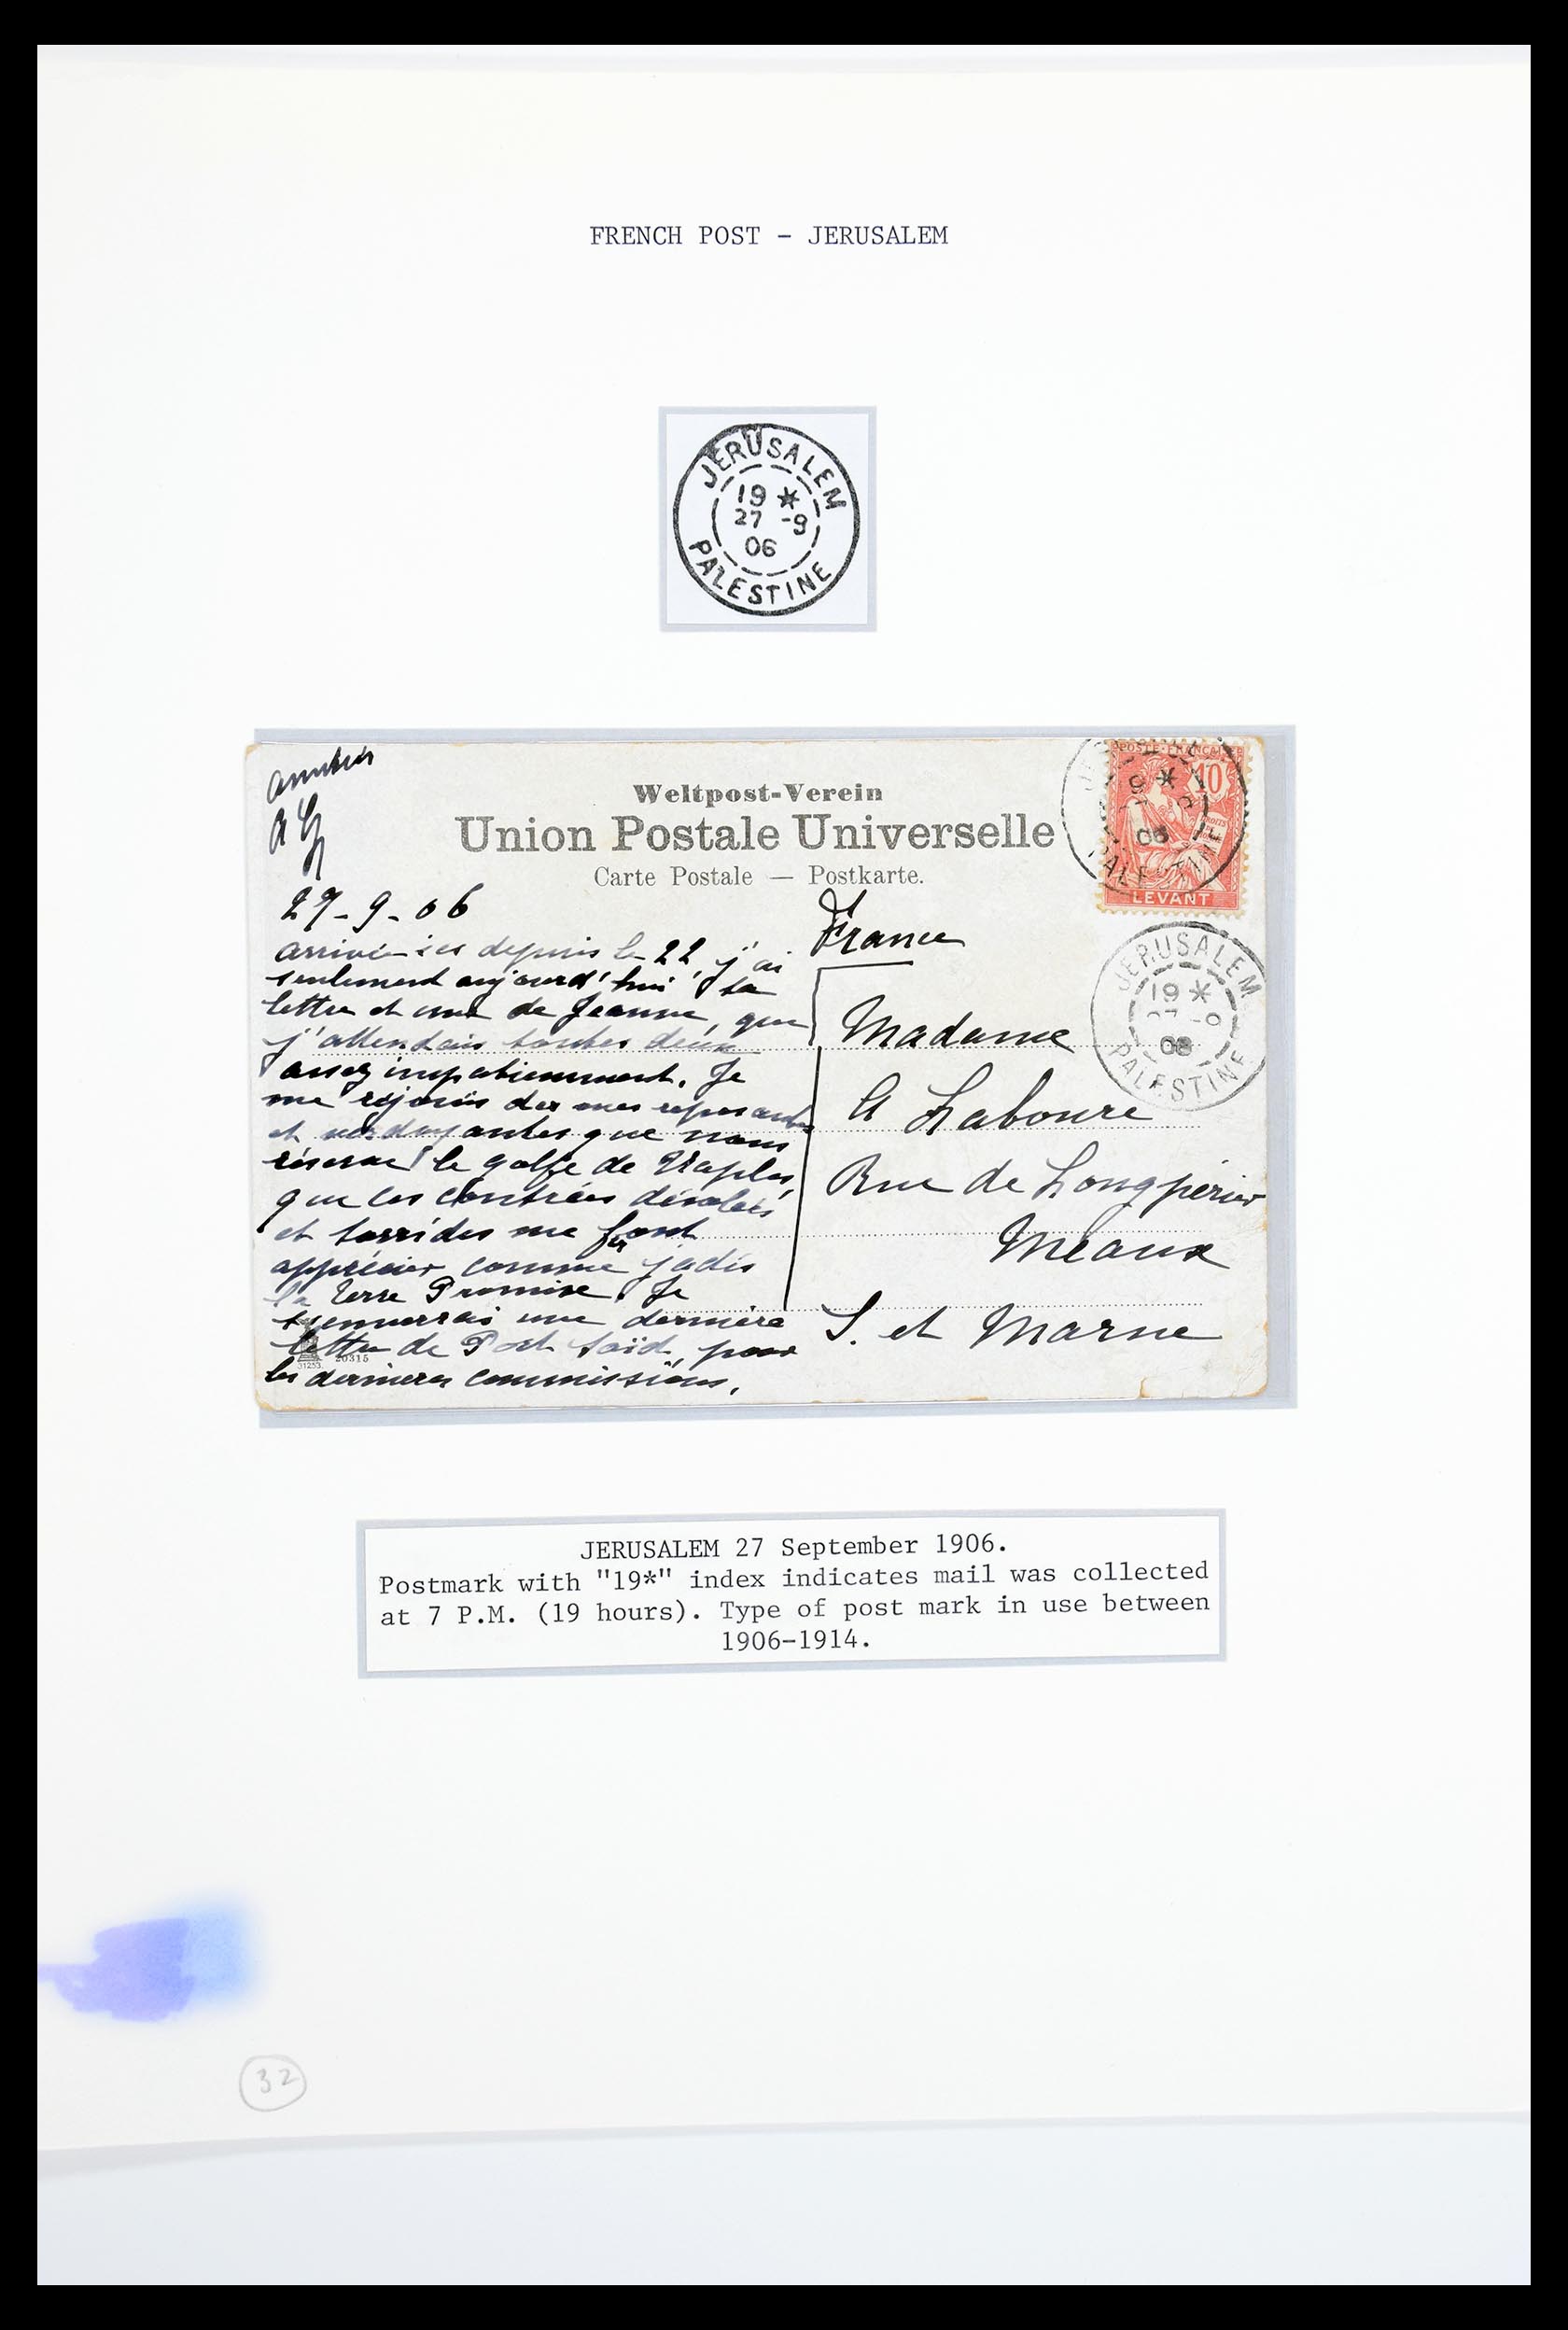 FRENCH POST - JERUSALEM
JERUSALEM
19 *
27 -9
06
PALESTINE
amitiés
Weltpost-Verein
Union Postale Universelle
Carte Postale — Postkarte.
POSTE FRANÇAISE
10
06
PALESTINE
LEVANT
JERUSALEM
19 *
06
PALESTINE
27-9-06
arrivée ici depuis le 22, j'ai
seulement aujourd'hui ta
lettre et une de Jeanne, que
j'attendais toutes deux
assez impatiemment. Je
me réjouis des reposantes
et verdoyantes que nous
réserve le golfe de Naples,
que les contrées désolées
et torrides me font
apprécier comme jadis
la Terre Promise. Je
une dernière
lettre de Port Saïd, pour
les dernières commissions.
31253 20315
France
Madame
A Laboure
Rue de Longperier
Meaux
S. et Marne
JERUSALEM 27 September 1906.
Postmark with "19*" index indicates mail was collected
at 7 P.M. (19 hours). Type of post mark in use between
1906-1914.
32